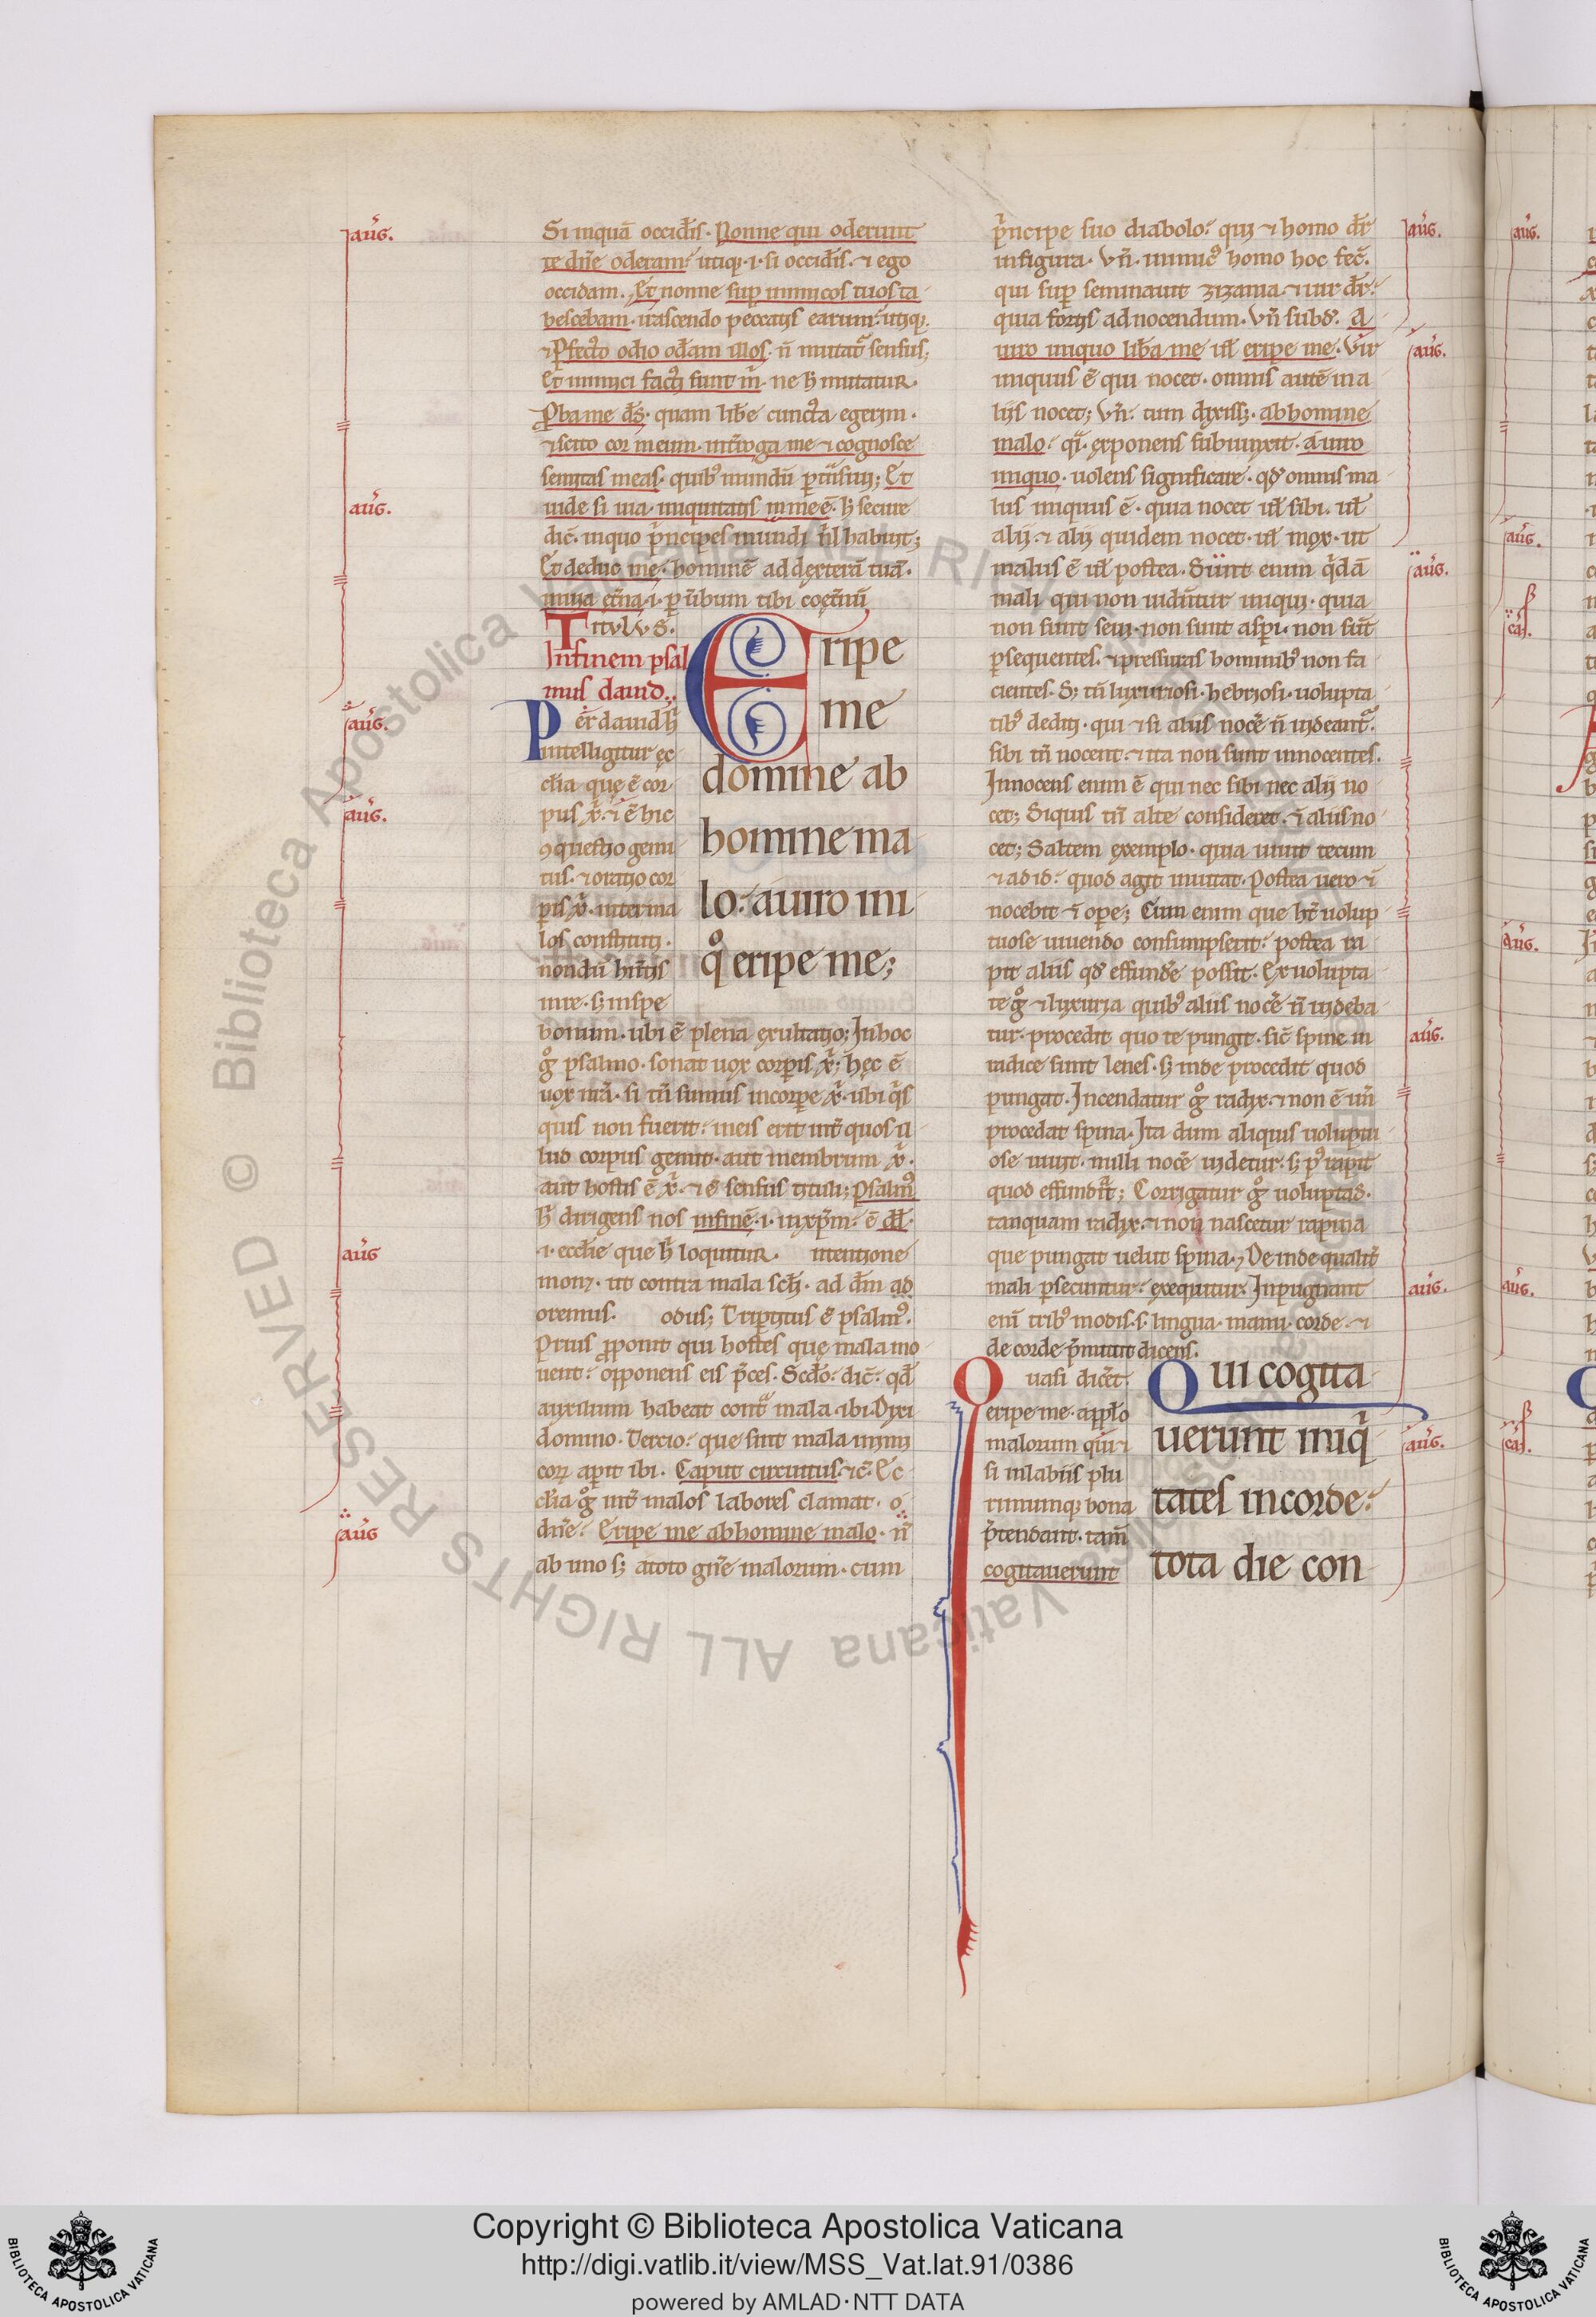 Si inquā occid̄is. Nonne qui oderunt
te dn̄e oderam: utiq; .i. si occid̄is. ⁊ ego
occidam. Et nonne sup inimicos tuos ta
bescebam. irascendo peccatis earum: utiq;.
⁊ Pfecto odio od̄am illos. n̄ mutat᷑ sensus;
Et inimici facti sunt m̄. ne h̄ mutatur.
Pba me d̄s. quam lib̄e cuncta egerim.
⁊ scito cor meum. int̄roga me ⁊ cognosce
semitas meas. quibꝰ mundū p̄t̄nsiui; Et
uide si uia iniquitatis in me ē. h̄ secure
dic̄. in quo p̄ncipes mundi n̄l habuit;
Et deduc me. hominē ad dexterā tuā.
in uia et̄na .i. p ūbum tibi coęt̄nū
Titvlvs.
In finem psal
mus dauid.
Per dauid h̄
intelligitur ęc
cl̄ia que ē cor
pus xp̄i. ⁊ ē hic
ꝯquestio gemi
tus. ⁊ oratio cor
pis xp̄i. inter ma
los constituti.
nondū hn̄tis
in re. s; in spe
Eripe
me
domine ab
homine ma
lo: a uiro ini
qͦ eripe me;
bonum. ubi ē plena exultatio; In hoc
gͦ psalmo. sonat uox corpis xp̄i; hęc ē
uox nr̄a. si tn̄ sumus in corpe xp̄i. ubi q̄s
quis non fuerit: in eis erit int̄ quos il
lud corpus gemit. aut membrum xp̄i.
aut hostis ē xp̄i. ⁊ ē sensus tituli; Psalmꝰ
h̄ dirigens nos in finē .i. in xp̄m. ē dd̄.
.i. eccl̄ie que h̄ loquitur. intentione
monꝫ. ut contra mala scl̄i. ad dm̄ ad
oremus. odus; Tripartitus ē psalmꝰ.
Prius ꝓponit qui hostes quę mala mo
uent: opponens eis p̄ces. Scd̄o: dic̄. qd̄
auxilium habeat contᵃ mala. ibi. Dixi
domino. Tercio: que sint mala inimi
corꝫ apit ibi. Caput circuitus. ⁊c̄. Ec
cl̄ia gͦ int̄ malos labores clamat. o
dn̄e. Eripe me ab homine malo. n̄
ab uno s; a toto gn̄e malorum. cum
p̄ncipe suo diabolo: qui ⁊ homo dr̄
in figura. Vn̄. inimicꝰ homo hoc fec̄.
qui sup seminauit zizania. ⁊ uir dr̄:
quia fortis ad nocendum. Vn̄ subd̄. A
uiro iniquo lib̄a me ul̄ eripe me. Vir
iniquus ē qui nocet. omnis autē ma
lus nocet; Vn̄. cum dixiss;. ab homine
malo: qͣi. exponens subiunxit. a uiro
iniquo. uolens significare. qd̄ omnis ma
lus iniquus ē. quia nocet ul̄ sibi. ul̄
alii. ⁊ alii quidem nocet. ul̄ mox. ut
malus ē ul̄ postea. Sunt enim q̄dā
mali qui non uidn̄tur iniqui. quia
non sunt seui. non sunt aspi. non sūt
psequentes. ⁊ pressuras hominibꝰ non fa
cientes. S; tn̄ luxuriosi. hebriosi. uolupta
tibꝰ dediti. qui ⁊ si aliis nocē n̄ uideant᷑:
sibi tn̄ nocent. ⁊ ita non sunt innocentes.
Innocens enim ē qui nec sibi nec alii no
cet; Siquis tn̄ alte consideret. ⁊ aliis no
cet; Saltem exemplo. quia uiuit tecum
⁊ ad id: quod agit inuitat. Postea uero ⁊
nocebit ⁊ ope; Cum enim que hēt uolup
tuose uiuendo consumpserit: postea ra
pit aliis qd̄ effund̄e possit. Ex uolupta
te gͦ ⁊ luxuria quibꝰ aliis nocē n̄ uideba
tur. procedit quo te pungit. sic̄ spine in
radice sunt lenes. s; inde procedit quod
pungat. Incendatur gͦ radix. ⁊ non ē un̄
procedat spina. Ita dum aliquis uoluptu
ose uiuit. nulli nocē uidetur. s; pꝰ rapit
quod effundat; Corrigatur gͦ uoluptas.
tanquam radix. ⁊ non nascetur rapina
que pungat uelut spina. Deinde qualit̄
mali psecuntur: exequitur. Inpugnant
eni tribꝰ modis. s. lingua. manu. corde. ⁊
de corde p̄mittit dicens.
Quasi dicēt
eripe me. a pplo
malorum qui ⁊
si in labiis plu
rimumq; bona
p̄tendant. tam̄
cogitauerunt
Qui cogita
uerunt iniqͥ
tates in corde:
tota die con
aug̅.
aug̅.
aug̅.
aug̅.
aug̅
aug̅
aug̅.
aug̅.
aug̅.
aug̅.
aug̅.
aug̅.
aug̅.
aug̅.
cas̄.
aug̅.
aug̅.
cas̄.
© Biblioteca Apostolica Vaticana ALL RIGHTS RESERVED
Copyright © Biblioteca Apostolica Vaticana
http://digi.vatlib.it/view/MSS_Vat.lat.91/0386
powered by AMLAD·NTT DATA
BIBLIOTECA APOSTOLICA VATICANA
BIBLIOTECA APOSTOLICA VATICANA